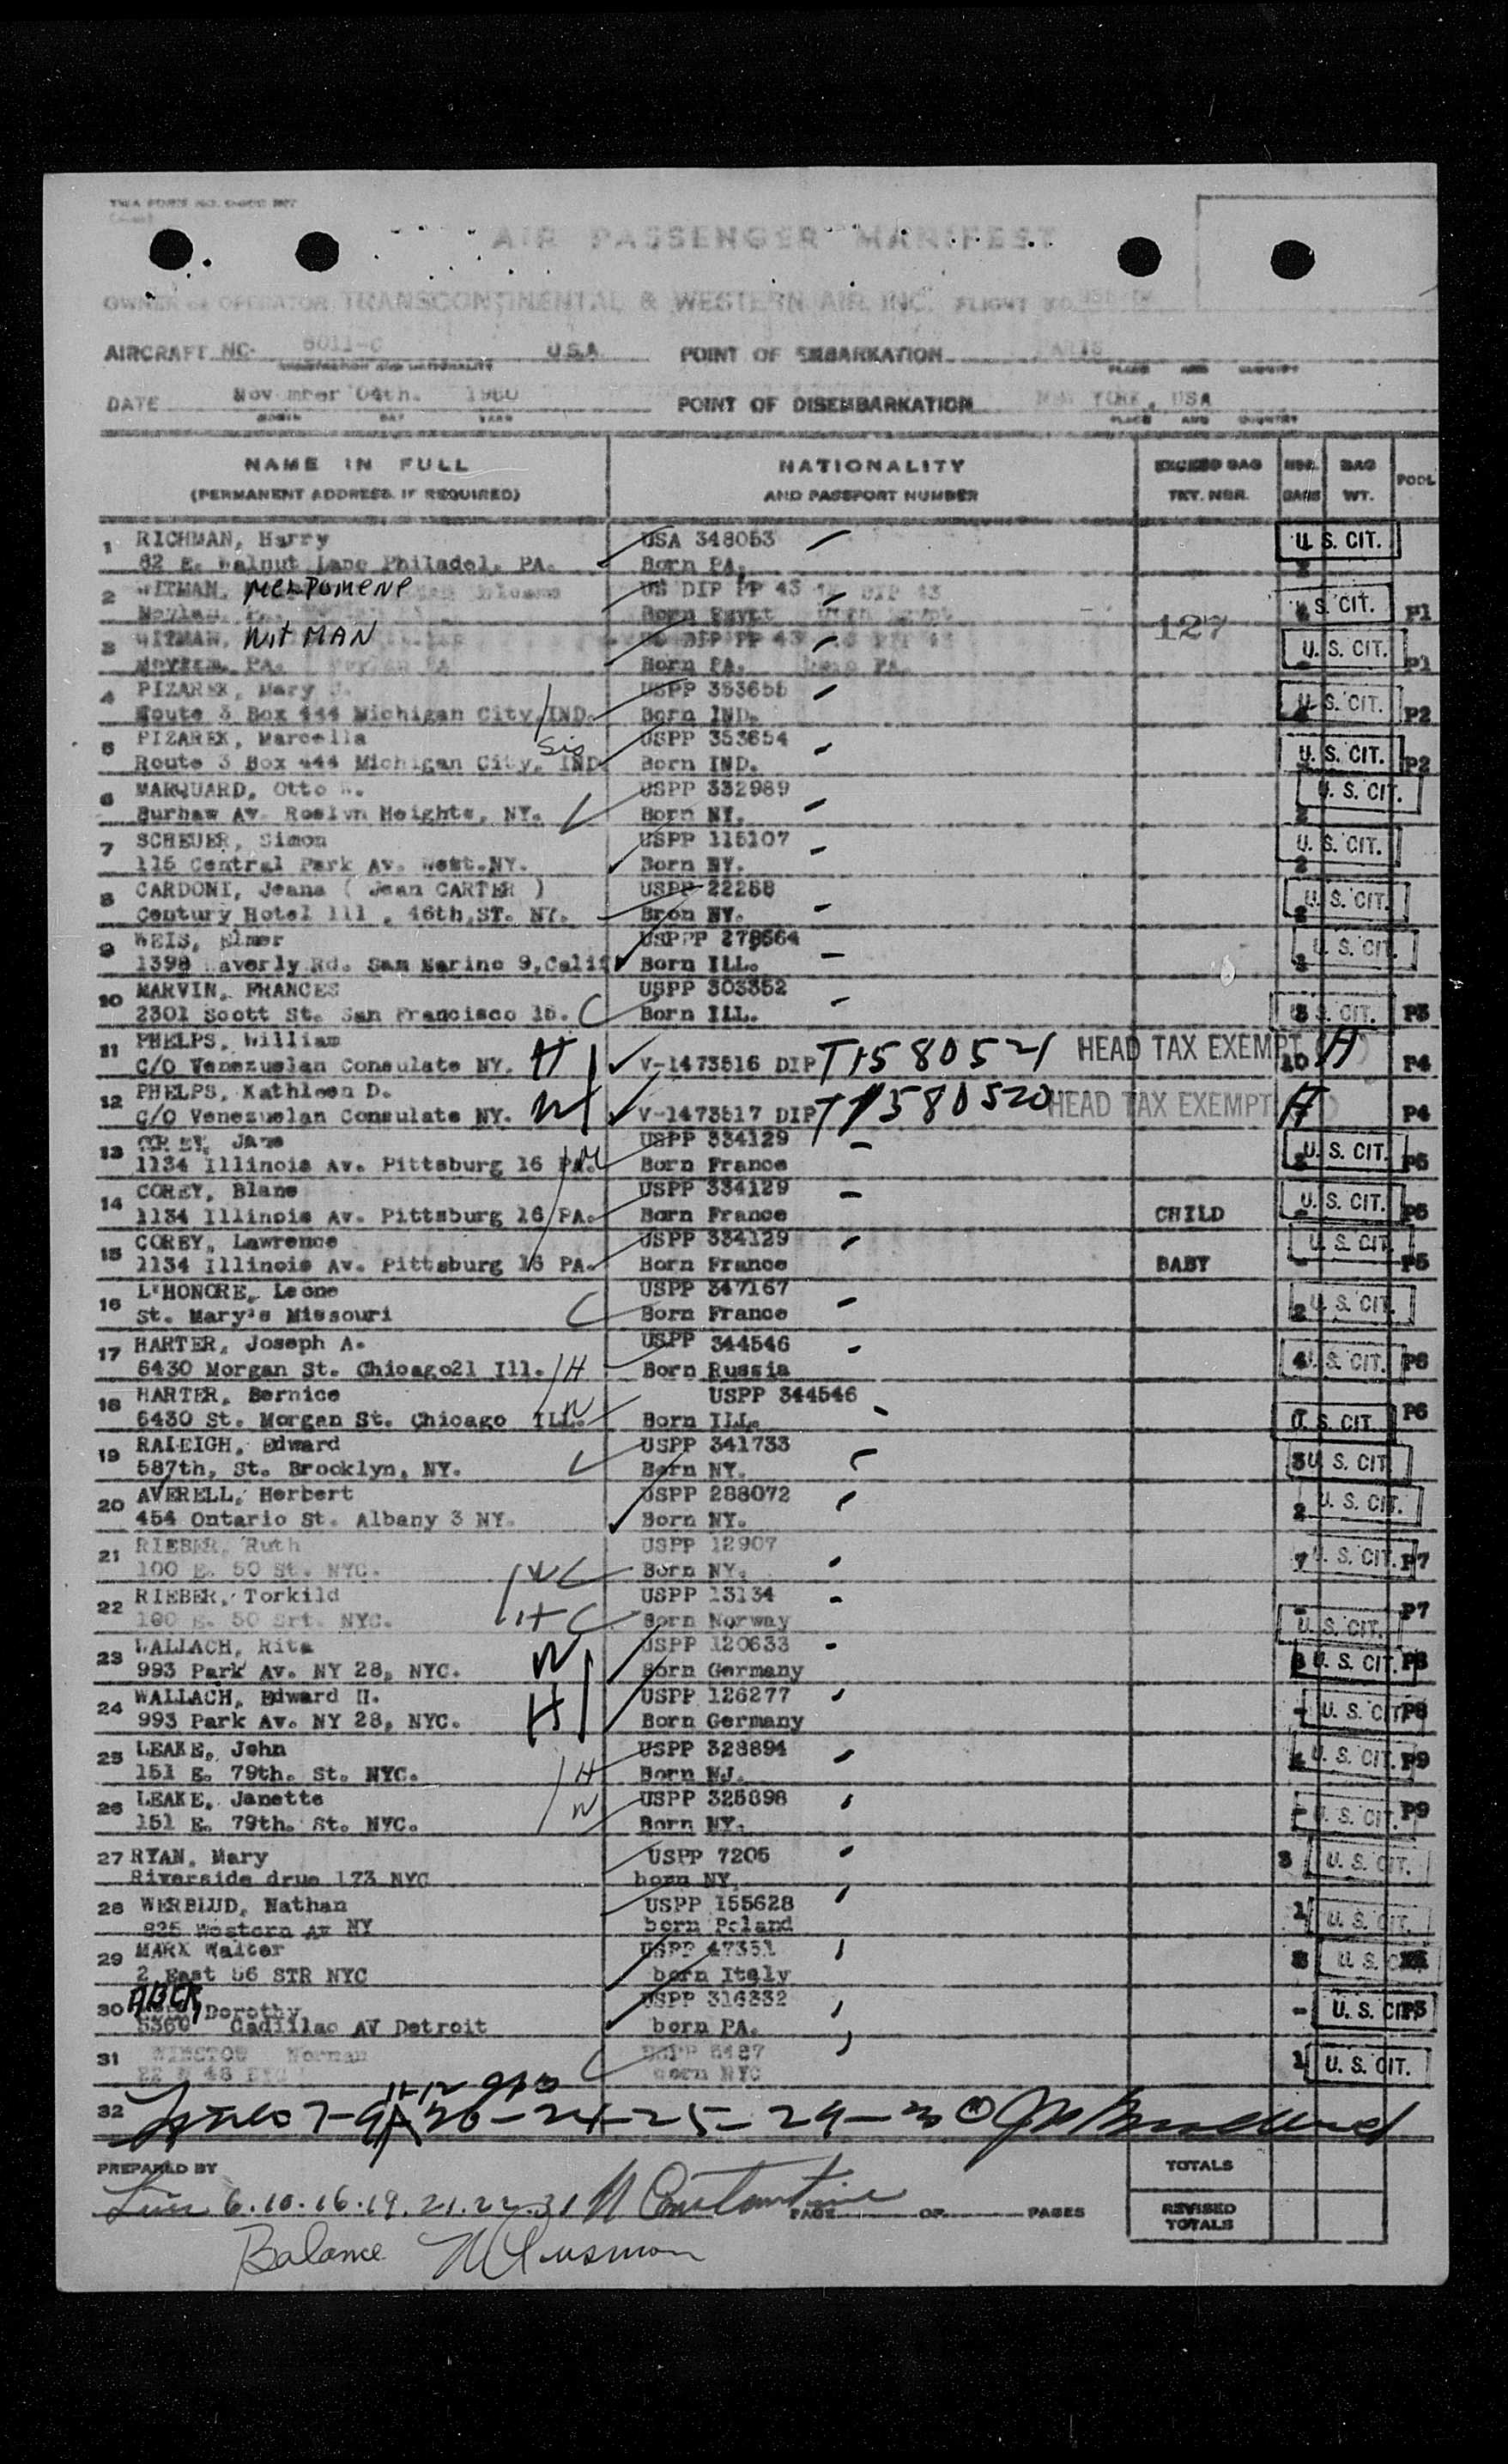 AIR PASSENGER MANIFEST
OWNER or OPERATOR TRANSCONTINENTAL & WESTERN AIR, INC. FLIGHT NO.
AIRCRAFT NC- 6011-C U.S.A. POINT OF EMBARKATION PARIS
PLACE AND COUNTRY
DATE November 04th. 1950 POINT OF DISEMBARKATION NEW YORK, USA
MONTH DAY YEAR PLACE AND COUNTRY
NAME IN FULL NATIONALITY EXCESS BAG NBR. BAG POOL
(PERMANENT ADDRESS, IF REQUIRED) AND PASSPORT NUMBER TKT. NBR. BAGS WT.
1 RICHMAN, Harry USA 348053 U. S. CIT.
62 E. Walnut Lane Philadel. PA. Born PA. 2
2 WITMAN, MELPOMENE US DIP PP 43 U. S. CIT.
Moylan, PA. Born Egypt 127 P1
3 WITMAN, WitMAN US DIP PP 43 U. S. CIT.
Moylan, PA. Born PA. P1
4 PIZAREK, Mary J. USPP 353655 U. S. CIT.
Route 3 Box 444 Michigan City, IND. Born IND. P2
5 PIZAREK, Marcella Sis USPP 353654 U. S. CIT.
Route 3 Box 444 Michigan City, IND. Born IND. P2
6 MARQUARD, Otto USPP 332989 U. S. CIT.
Burhaw Av. Roslyn Heights, NY. Born NY. 2
7 SCHEUER, Simon USPP 115107 U. S. CIT.
115 Central Park Av. West.NY. Born NY. 2
8 CARDONI, Jeana ( Jean CARTER ) USPP 22258 U. S. CIT.
Century Hotel 111 , 46th,ST. NY. Bron NY. 2
9 WEIS, Elmer USPPP 278564 U. S. CIT.
1398 Waverly Rd. San Marino 9,Calif Born ILL.
10 MARVIN, FRANCES USPP 303352
2301 Scott St. San Francisco 15. Born ILL. U. S. CIT. P3
11 PHELPS, William
C/O Venezuelan Consulate NY. H V-1473516 DIP T1580521 HEAD TAX EXEMPT 10 H P4
12 PHELPS, Kathleen D.
C/O Venezuelan Consulate NY. W V-1473517 DIP T1580520 HEAD TAX EXEMPT H P4
13 COREY, Jane USPP 334129
1134 Illinois Av. Pittsburg 16 PA. M Born France U. S. CIT. P5
14 COREY, Blane USPP 334129
1134 Illinois Av. Pittsburg 16 PA. Born France CHILD U. S. CIT. P5
15 COREY, Lawrence USPP 334129 U. S. CIT.
1134 Illinois Av. Pittsburg 16 PA. Born France BABY P5
16 L'HONORE, Leone USPP 347167
St. Mary's Missouri Born France 2 U. S. CIT.
17 HARTER, Joseph A. USPP 344546
6430 Morgan St. Chicago21 Ill. H Born Russia 4 U. S. CIT. P6
18 HARTER, Bernice W USPP 344546
6430 St. Morgan St. Chicago ILL. Born ILL. U. S. CIT. P6
19 RALEIGH, Edward USPP 341733
587th, St. Brooklyn, NY. Born NY. 3 U. S. CIT.
20 AVERELL, Herbert USPP 288072
454 Ontario St. Albany 3 NY. Born NY. 2 U. S. CIT.
21 RIEBER, Ruth USPP 12907
100 E. 50 St. NYC. W Born NY. 7 U. S. CIT. P7
22 RIEBER, Torkild USPP 13134
100 E. 50 Srt. NYC. H Born Norway U. S. CIT. P7
23 WALLACH, Rita USPP 120633
993 Park Av. NY 28, NYC. W Born Germany U. S. CIT. P8
24 WALLACH, Edward H. USPP 126277
993 Park Av. NY 28, NYC. H Born Germany - U. S. CIT. P8
25 LEAKE, John USPP 328894
151 E. 79th. St. NYC. H Born NJ. U. S. CIT. P9
26 LEAKE, Janette USPP 325898
151 E. 79th. St. NYC. W Born NY. - U. S. CIT. P9
27 RYAN, Mary USPP 7205
Riverside drue 173 NYC born NY, 3 U. S. CIT.
28 WERBLUD, Nathan USPP 155628
825 Western Av NY born Poland 1 U. S. CIT.
29 MARX Walter USPP 47351
2 East 56 STR NYC born Italy U. S. CIT.
30 ABER, Dorothy USPP 316332
5360 Cadillac AV Detroit born PA. - U. S. CIT. P3
31 WINSTON Norman USPP 5487
22 E 48 NYC born NYC 1 U. S. CIT.
11-12
32 Lines 7-9 20-24-25-29-30
PREPARED BY TOTALS
Lines 6.10.16.19.21.22.31 N Constantine PAGE OF PAGES REVISED TOTALS
Balance